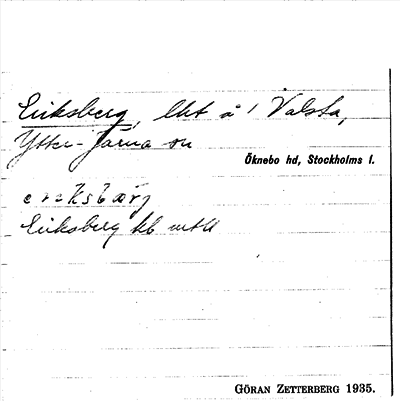 Eriksberg, lht å 1 Valsta,
Ytter-Järna sn
Öknebo hd, Stockholms l.
e r i k s b æ r j
Eriksberg
GÖRAN ZETTERBERG 1935.